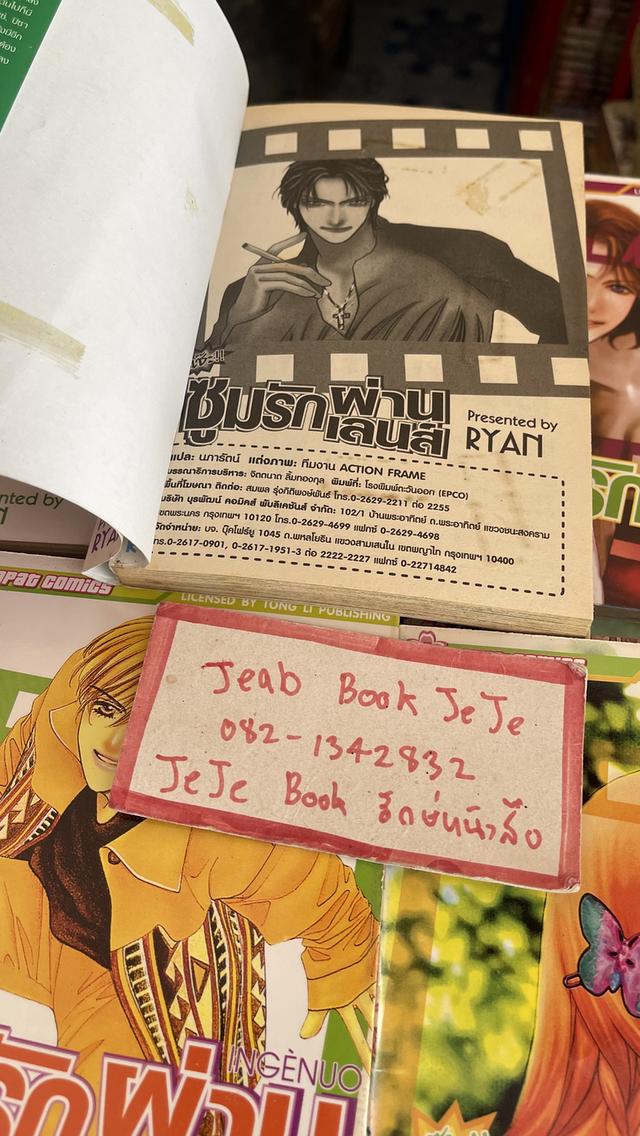 ซูมรักผ่านเลนส์
Presented by
RYAN
แปล: นภารัตน์ แต่งภาพ: ทีมงาน ACTION FRAME
บรรณาธิการบริหาร: จิตตนาถ ลิ้มทองกุล พิมพ์ที่: โรงพิมพ์ตะวันออก (EPCO)
พื้นที่โฆษณา ติดต่อ: สมพล รุ่งกิติพงษ์พันธ์ โทร.0-2629-2211 ต่อ 2255
บริษัท บุรพัฒน์ คอมิคส์ พับลิเคชันส์ จำกัด: 102/1 บ้านพระอาทิตย์ ถ.พระอาทิตย์ แขวงชนะสงคราม
เขตพระนคร กรุงเทพฯ 10120 โทร.0-2629-4699 แฟกซ์ 0-2629-4698
จัดจำหน่าย: บจ. บุ๊คโฟร์ยู 1045 ถ.พหลโยธิน แขวงสามเสนใน เขตพญาไท กรุงเทพฯ 10400
โทร.0-2617-0901, 0-2617-1951-3 ต่อ 2222-2227 แฟกซ์ 0-22714842
COMICS
LICENSED BY TONG LI PUBLISHING
Jeab Book JeJe
082-1342832
JeJe Book
INGÈNUO
รักผ่าน